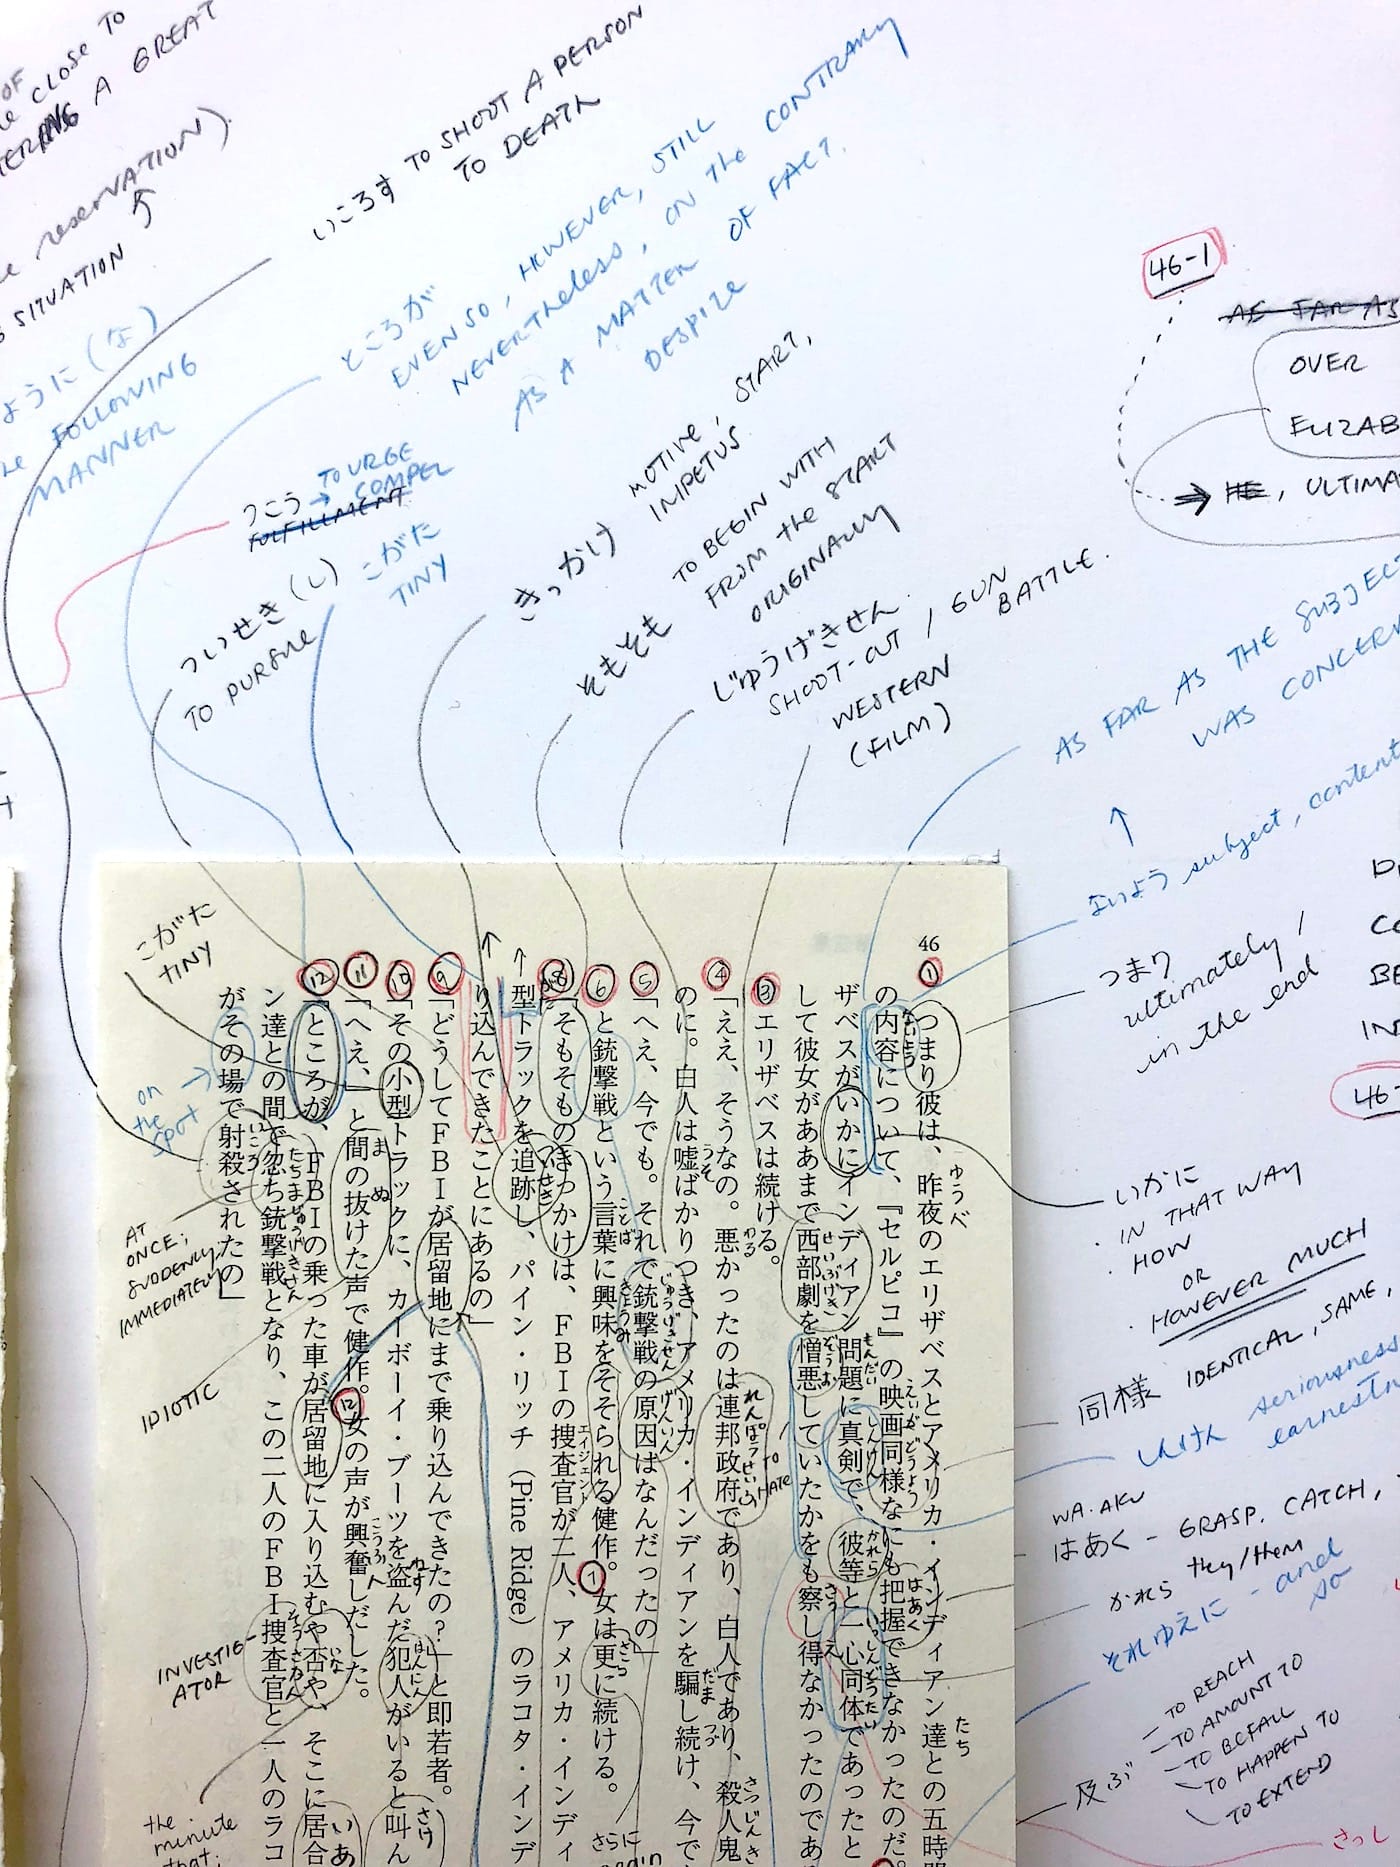 OF
CLOSE TO
A GREAT
reservation).
SITUATION
ように(な)
FOLLOWING
MANNER
いころす TO SHOOT A PERSON
TO DEATH
ところが
EVEN SO, HOWEVER, STILL
NEVERTHELESS, ON THE CONTRARY
AS A MATTER OF FACT.
DESPITE
つこう → TO URGE
COMPEL
FULFILLMENT
こがた
TINY
ついせき(し)
TO PURSUE
きっかけ MOTIVE, START,
IMPETUS
そもそも TO BEGIN WITH
FROM the START
ORIGINALLY
じゅうげきせん
SHOOT-OUT / GUN
BATTLE.
WESTERN
(FILM)
46-1
AS FAR AS
OVER
ELIZAB
HE, ULTIMA
AS FAR AS THE SUBJECT
WAS CONCER
ないよう subject, content
つまり
ultimately /
in the end
46-
いかに
・IN THAT WAY
・HOW
OR
・HOWEVER MUCH
同様 IDENTICAL, SAME,
しんけん seriousness
earnestn
WA.AKU
はあく - GRASP. CATCH,
かれら they/them
それゆえに - and
so
及ぶ
TO REACH
TO AMOUNT TO
TO BEFALL
TO HAPPEN TO
TO EXTEND
さっし
こがた
TINY
on
the
SPOT
AT
ONCE;
SUDDENLY,
IMMEDIATELY
IDIOTIC
INVESTIG-
ATOR
the
minute
that;
TO
HATE
さらに
46
①つまり彼は、昨夜のエリザベスとアメリカ・インディアン達との五時間
の内容について、『セルピコ』の映画同様なにも把握できなかったのだ。
ザベスがいかにインディアン問題に真剣で、彼等と一心同体であったと
して彼女がああまで西部劇を憎悪していたかをも察し得なかったのであ
③エリザベスは続ける。
④「ええ、そうなの。悪かったのは連邦政府であり、白人であり、殺人鬼
のに。白人は嘘ばかりつき、アメリカ・インディアンを騙し続け、今で
⑤「へえ、今でも。それで銃撃戦の原因はなんだったの」
⑥と銃撃戦という言葉に興味をそそられる健作。女は更に続ける。
⑧「そもそものきっかけは、FBIの捜査官が二人、アメリカ・インディ
型トラックを追跡し、パイン・リッチ(Pine Ridge)のラコタ・インデ
り込んできたことにあるの」
⑨「どうしてFBIが居留地にまで乗り込んできたの?」と即若者。
⑩「その小型トラックに、カーボーイ・ブーツを盗んだ犯人がいると叫ん
⑪「へえ、」と間の抜けた声で健作。女の声が興奮しだした。
⑫「ところが、FBIの乗った車が居留地に入り込むや否や、そこに居合
ン達との間で忽ち銃撃戦となり、この二人のFBI捜査官と一人のラコ
がその場で射殺されたの」